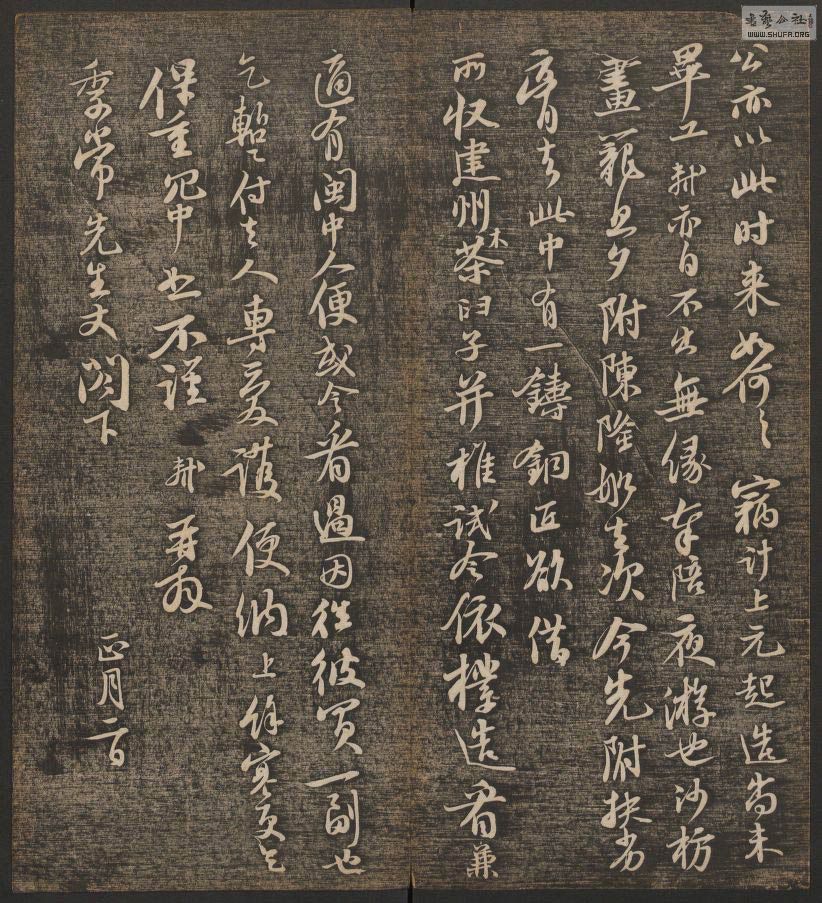 书艺公社
WWW.SHUFA.ORG
公亦以此时来如何々竊计上元起造尚未
畢工軾亦自不出無缘奉陪夜游也沙枋
畫籠旦夕附陳隆船去次今先附扶劣
膏去此中有一鑄銅匠欲借
所收建州木茶臼子并椎試令依樣造看兼
適有閩中人便或令看過因往彼買一副也
乞暫付去人專愛護便納上餘寒更乞
保重冗中恕不謹 軾再拜
季常先生丈閣下
正月二日